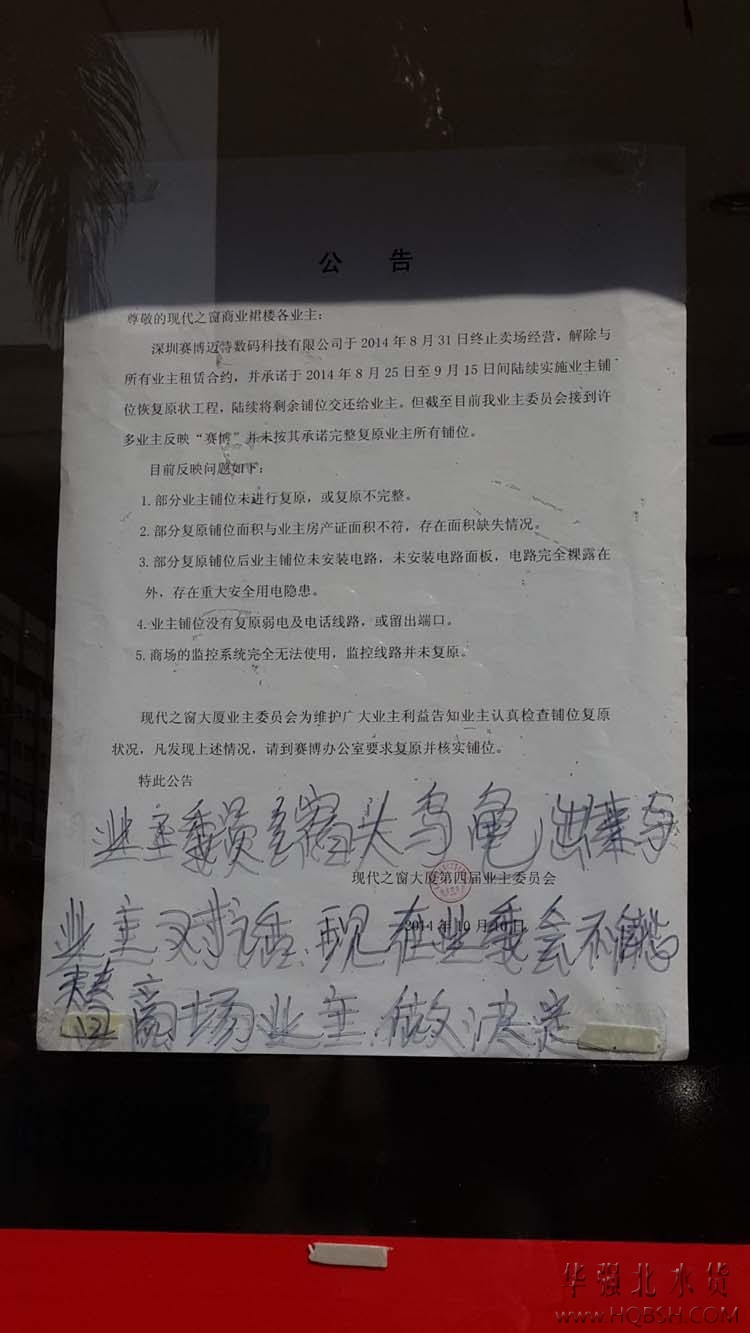 公 告
尊敬的现代之窗商业裙楼各业主：
深圳赛博迈特数码科技有限公司于 2014 年 8 月 31 日终止卖场经营，解除与
所有业主租赁合约，并承诺于 2014 年 8 月 25 日至 9 月 15 日间陆续实施业主铺
位恢复原状工程，陆续将剩余铺位交还给业主。但截至目前我业主委员会接到许
多业主反映“赛博”并未按其承诺完整复原业主所有铺位。
目前反映问题如下：
1. 部分业主铺位未进行复原，或复原不完整。
2. 部分复原铺位面积与业主房产证面积不符，存在面积缺失情况。
3. 部分复原铺位后业主铺位未安装电路，未安装电路面板，电路完全裸露在
外，存在重大安全用电隐患。
4. 业主铺位没有复原弱电及电话线路，或留出端口。
5. 商场的监控系统完全无法使用，监控线路并未复原。
现代之窗大厦业主委员会为维护广大业主利益告知业主认真检查铺位复原
状况，凡发现上述情况，请到赛博办公室要求复原并核实铺位。
特此公告
业主委员会缩头乌龟出来与
现代之窗大厦第四届业主委员会
2014 年 10 月 10 日
业主对话.现在业委会不能
替商场业主做决定
华强北水货
www.HQBSH.COM